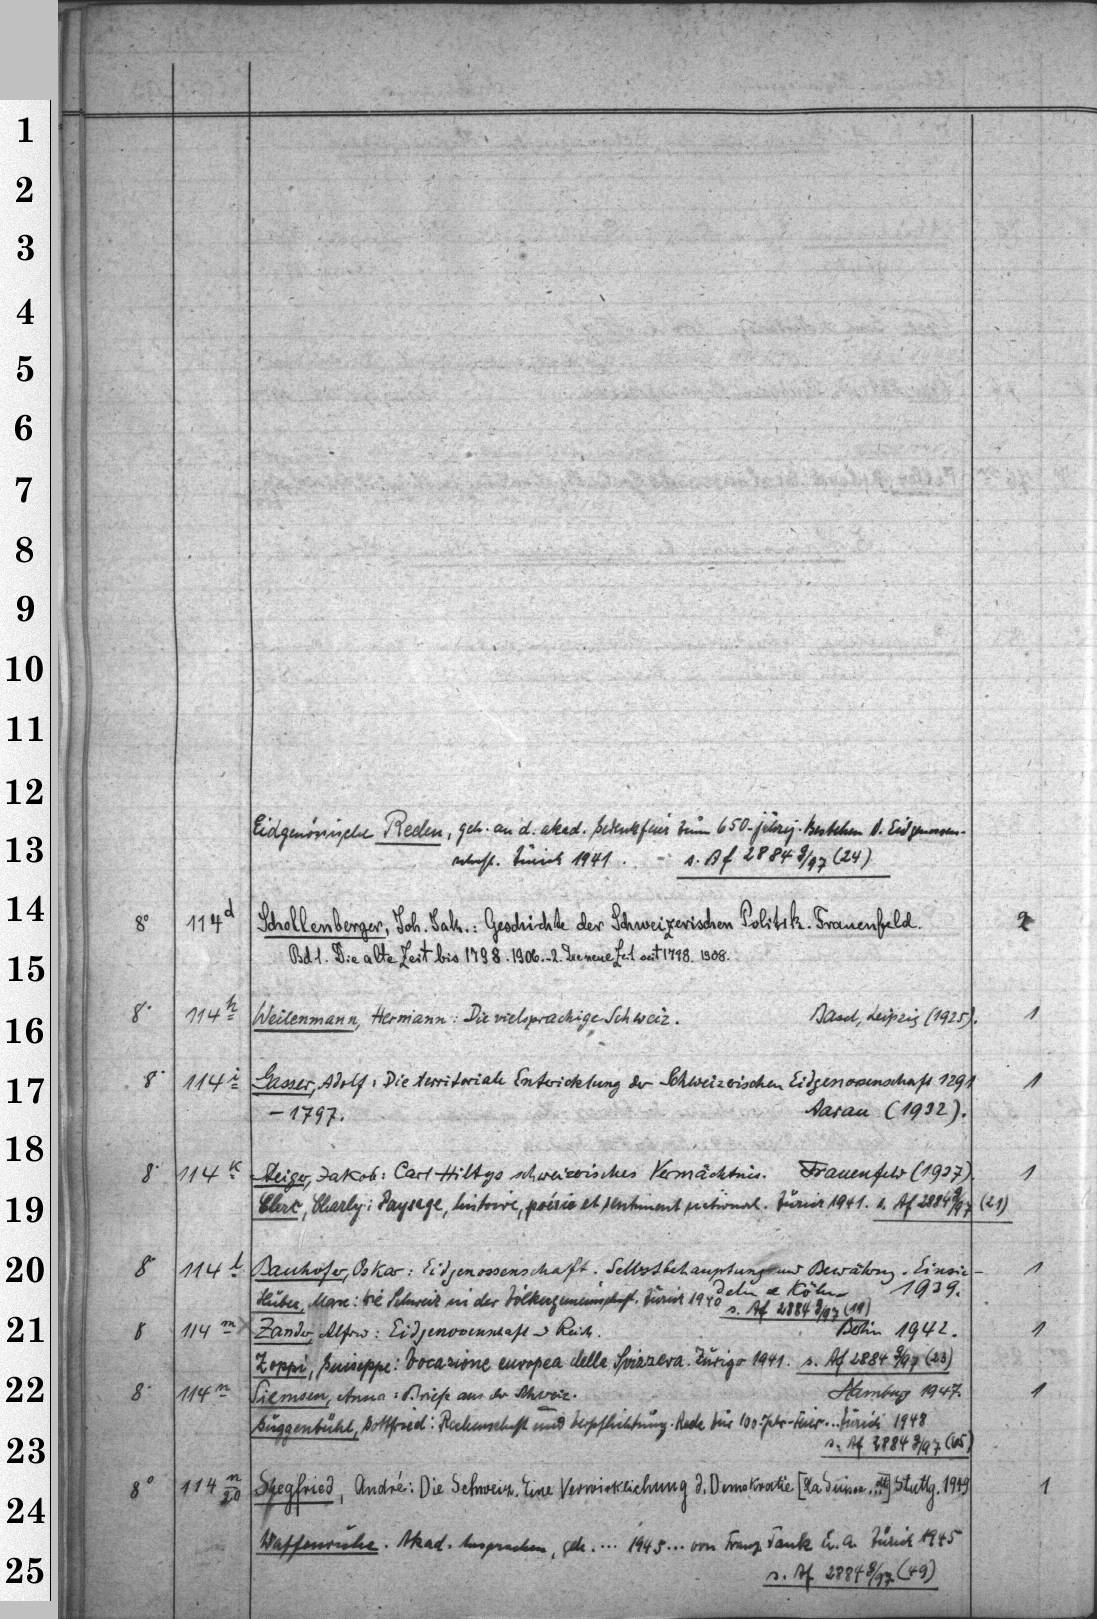 1
2
3
4
5
6
7
8
9
10
11
12
Eidgenössische Reden, geh. an d. akad. Gedenkfeier zum 650-jährig. Bestehen d. Eidgenossen-
13
schaft. Zürich 1941. - s. Af 2884 8/97 (24)
14
8° 114 d Schollenberger, Joh. Jak.: Geschichte der Schweizerischen Politik. Frauenfeld. 2
15
Bd 1. Die alte Zeit bis 1798. 1906. - 2. Die neue Zeit seit 1798. 1908.
16
8° 114 h Weilenmann, Hermann: Die vielsprachige Schweiz. Basel, Leipzig (1925). 1
17
8° 114 i Gasser, Adolf: Die territoriale Entwicklung der Schweizerischen Eidgenossenschaft 1291 1
- 1797. Aarau (1932).
18
8° 114 k Steiger, Jakob: Carl Hiltys schweizerisches Vermächtnis. Frauenfeld (1937). 1
19
Clerc, Charly: Paysage, histoire, poésie et sentiment national. Zürich 1941. s. Af 2884 8/97 (21)
20
8° 114 l Bauhofer, Oskar: Eidgenossenschaft. Selbstbehauptung und Bewährung. Einsie- 1
deln & Köln 1939.
Huber, Max: Die Schweiz in der Völkergemeinschaft. Zürich 1940 s. Af 2884 8/97 (19)
21
8 114 m Zander, Alfred: Eidgenossenschaft u Reich. Berlin 1942. 1
Zoppi, Guiseppe: Vocazione europea della Svizzera. Zurigo 1941. s. Af 2884 8/97 (23)
22
8° 114 n Siemsen, Anna: Briefe aus der Schweiz. Hamburg 1947. 1
Guggenbühl, Gottfried: Rechenschaft und Verpflichtung. Rede zur 100-Jahr-Feier... Zürich 1948
23
s. Af 2884 8/97
8° 114 n 20 Siegfried, André: Die Schweiz. Eine Verwirklichung d. Demokratie [La Suisse...] Stuttg. 1949 1
24
Waffenruhe. Akad. Ansprachen, geh. ... 1945 ... von Franz Tank u. a. Zürich 1945
25
s. Af 2884 8/97 (49)